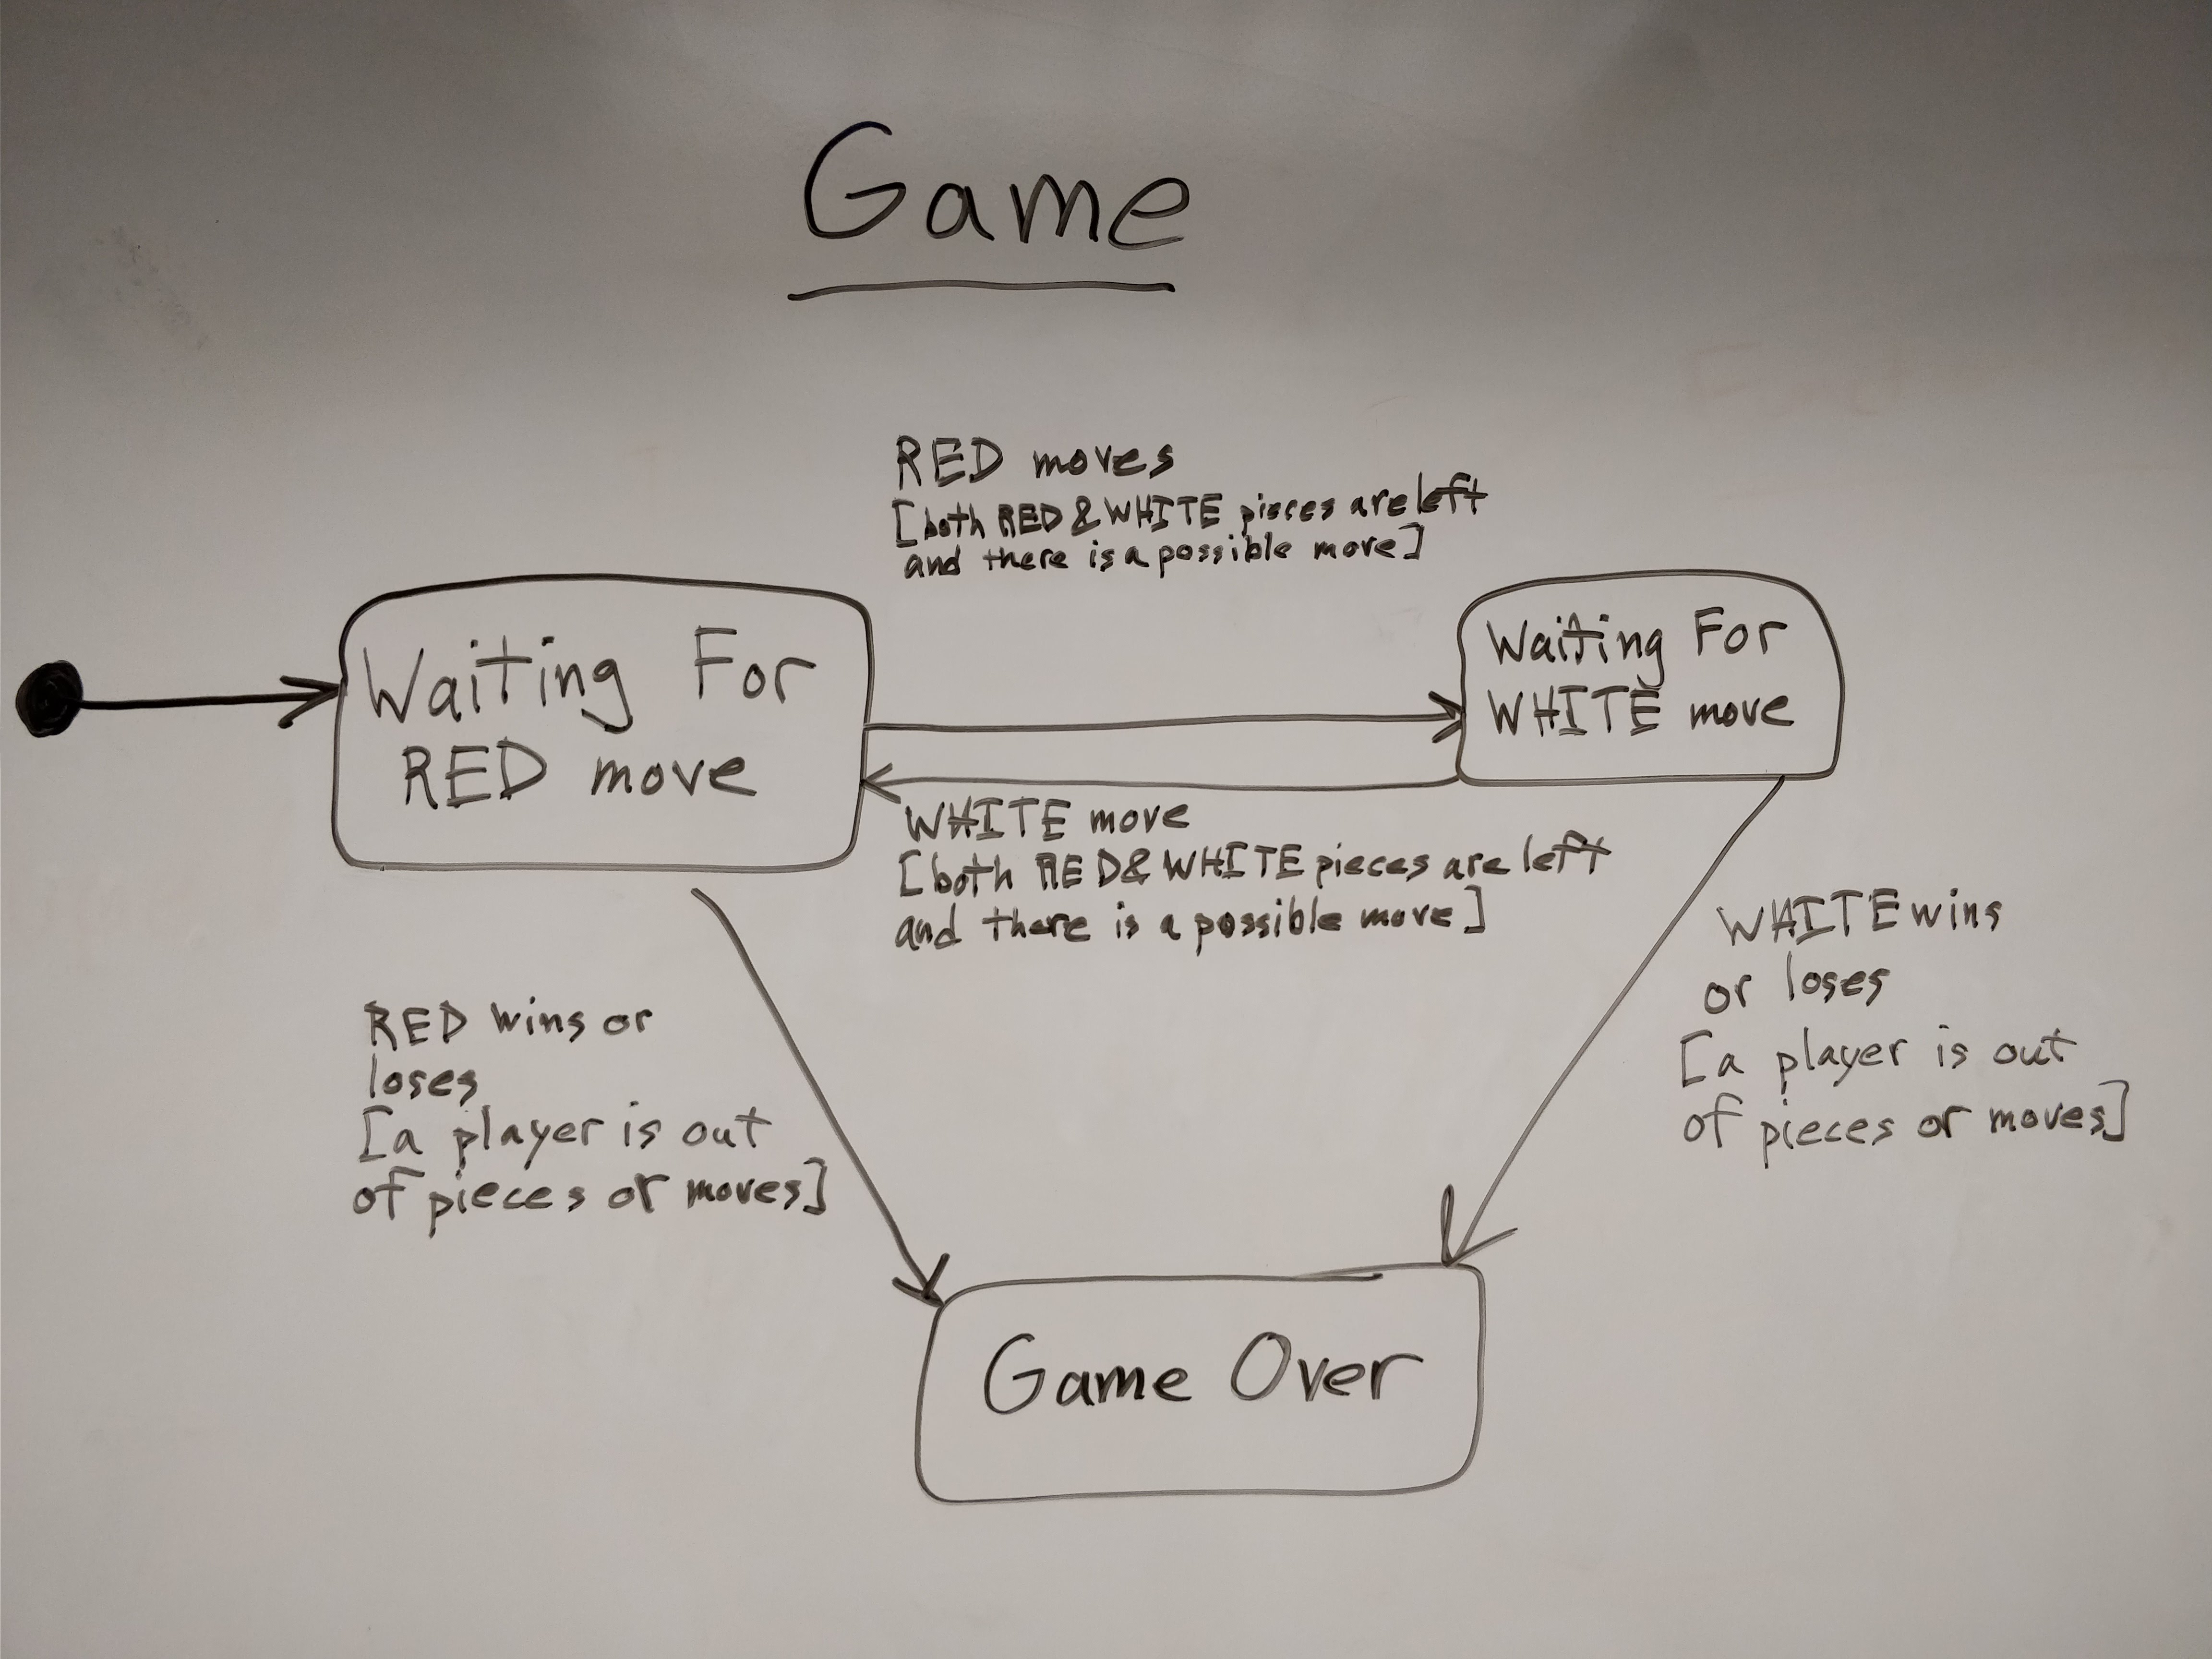 Game
RED moves
[both RED & WHITE pieces are left
and there is a possible move]
Waiting For
RED move
Waiting For
WHITE move
WHITE move
[both RED & WHITE pieces are left
and there is a possible move]
RED wins or
loses
[a player is out
of pieces or moves]
WHITE wins
or loses
[a player is out
of pieces or moves]
Game Over